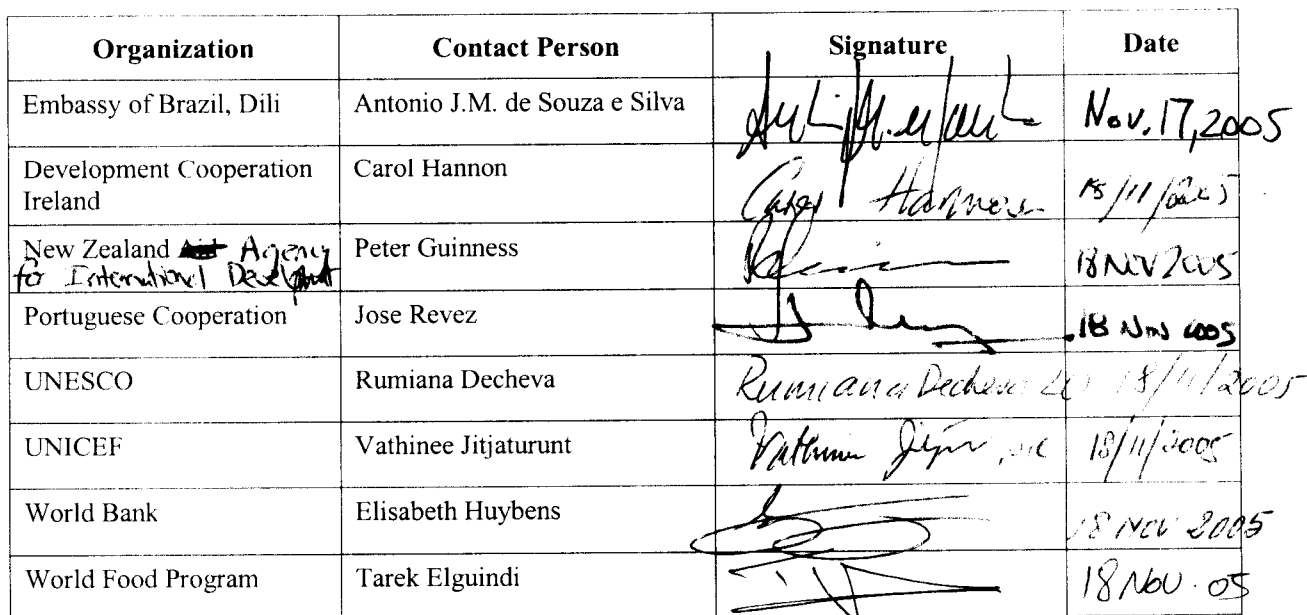 Organization Contact Person Signature Date
Embassy of Brazil, Dili Antonio J.M. de Souza e Silva Nov. 17, 2005
Development Cooperation Carol Hannon Carol Hannon 18/11/2005
Ireland
New Zealand Agency Peter Guinness 18 NOV 2005
for International Development
Portuguese Cooperation Jose Revez 18 Nov 2005
UNESCO Rumiana Decheva Rumiana Decheva 18/11/2005
UNICEF Vathinee Jitjaturunt Vathinee 18/11/2005
World Bank Elisabeth Huybens 18 NOV 2005
World Food Program Tarek Elguindi 18 NOV. 05